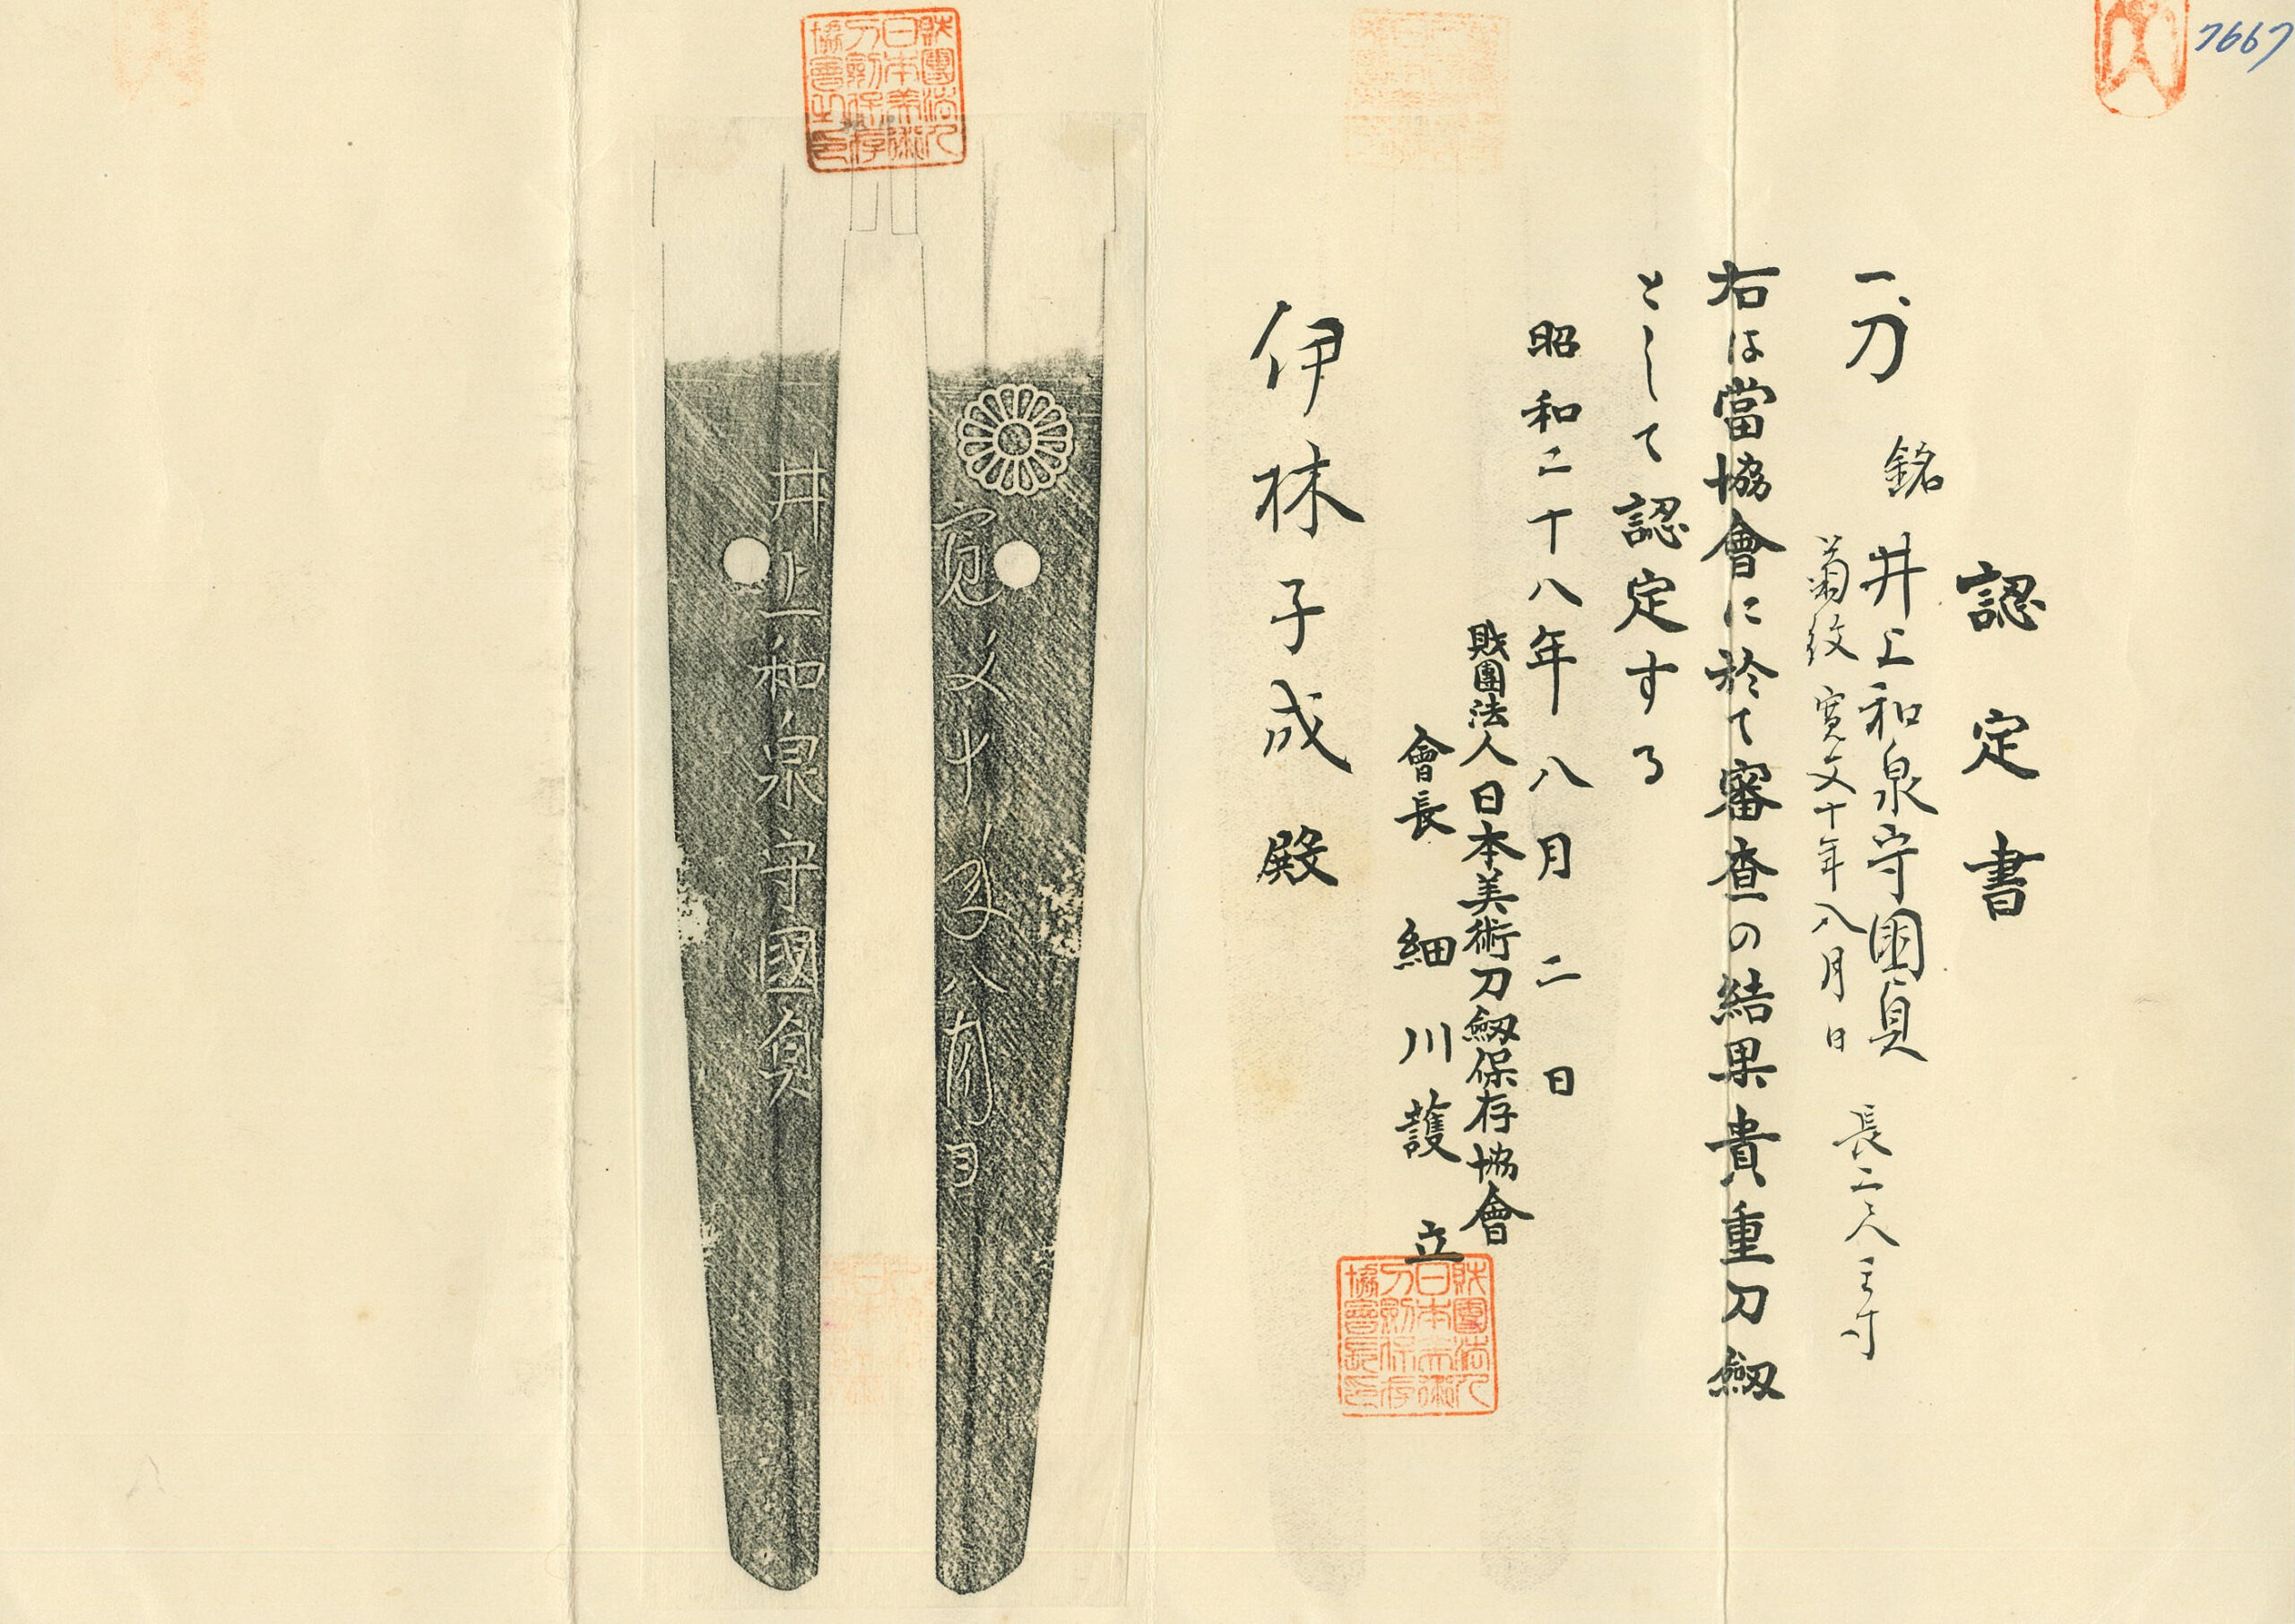 7667
認定書
一、刀 銘 井上和泉守國貞 長二尺三寸
菊紋 寛文十年八月日
右は當協會に於て審査の結果貴重刀劔
として認定する
昭和二十八年八月二日
財團法人日本美術刀劔保存協會
會長 細川護立
伊林子成殿
財團法人
日本美術
刀劍保存
協會長印
財團法人
日本美術
刀劍保存
協會之印
寛文十年八月日
井上和泉守國貞